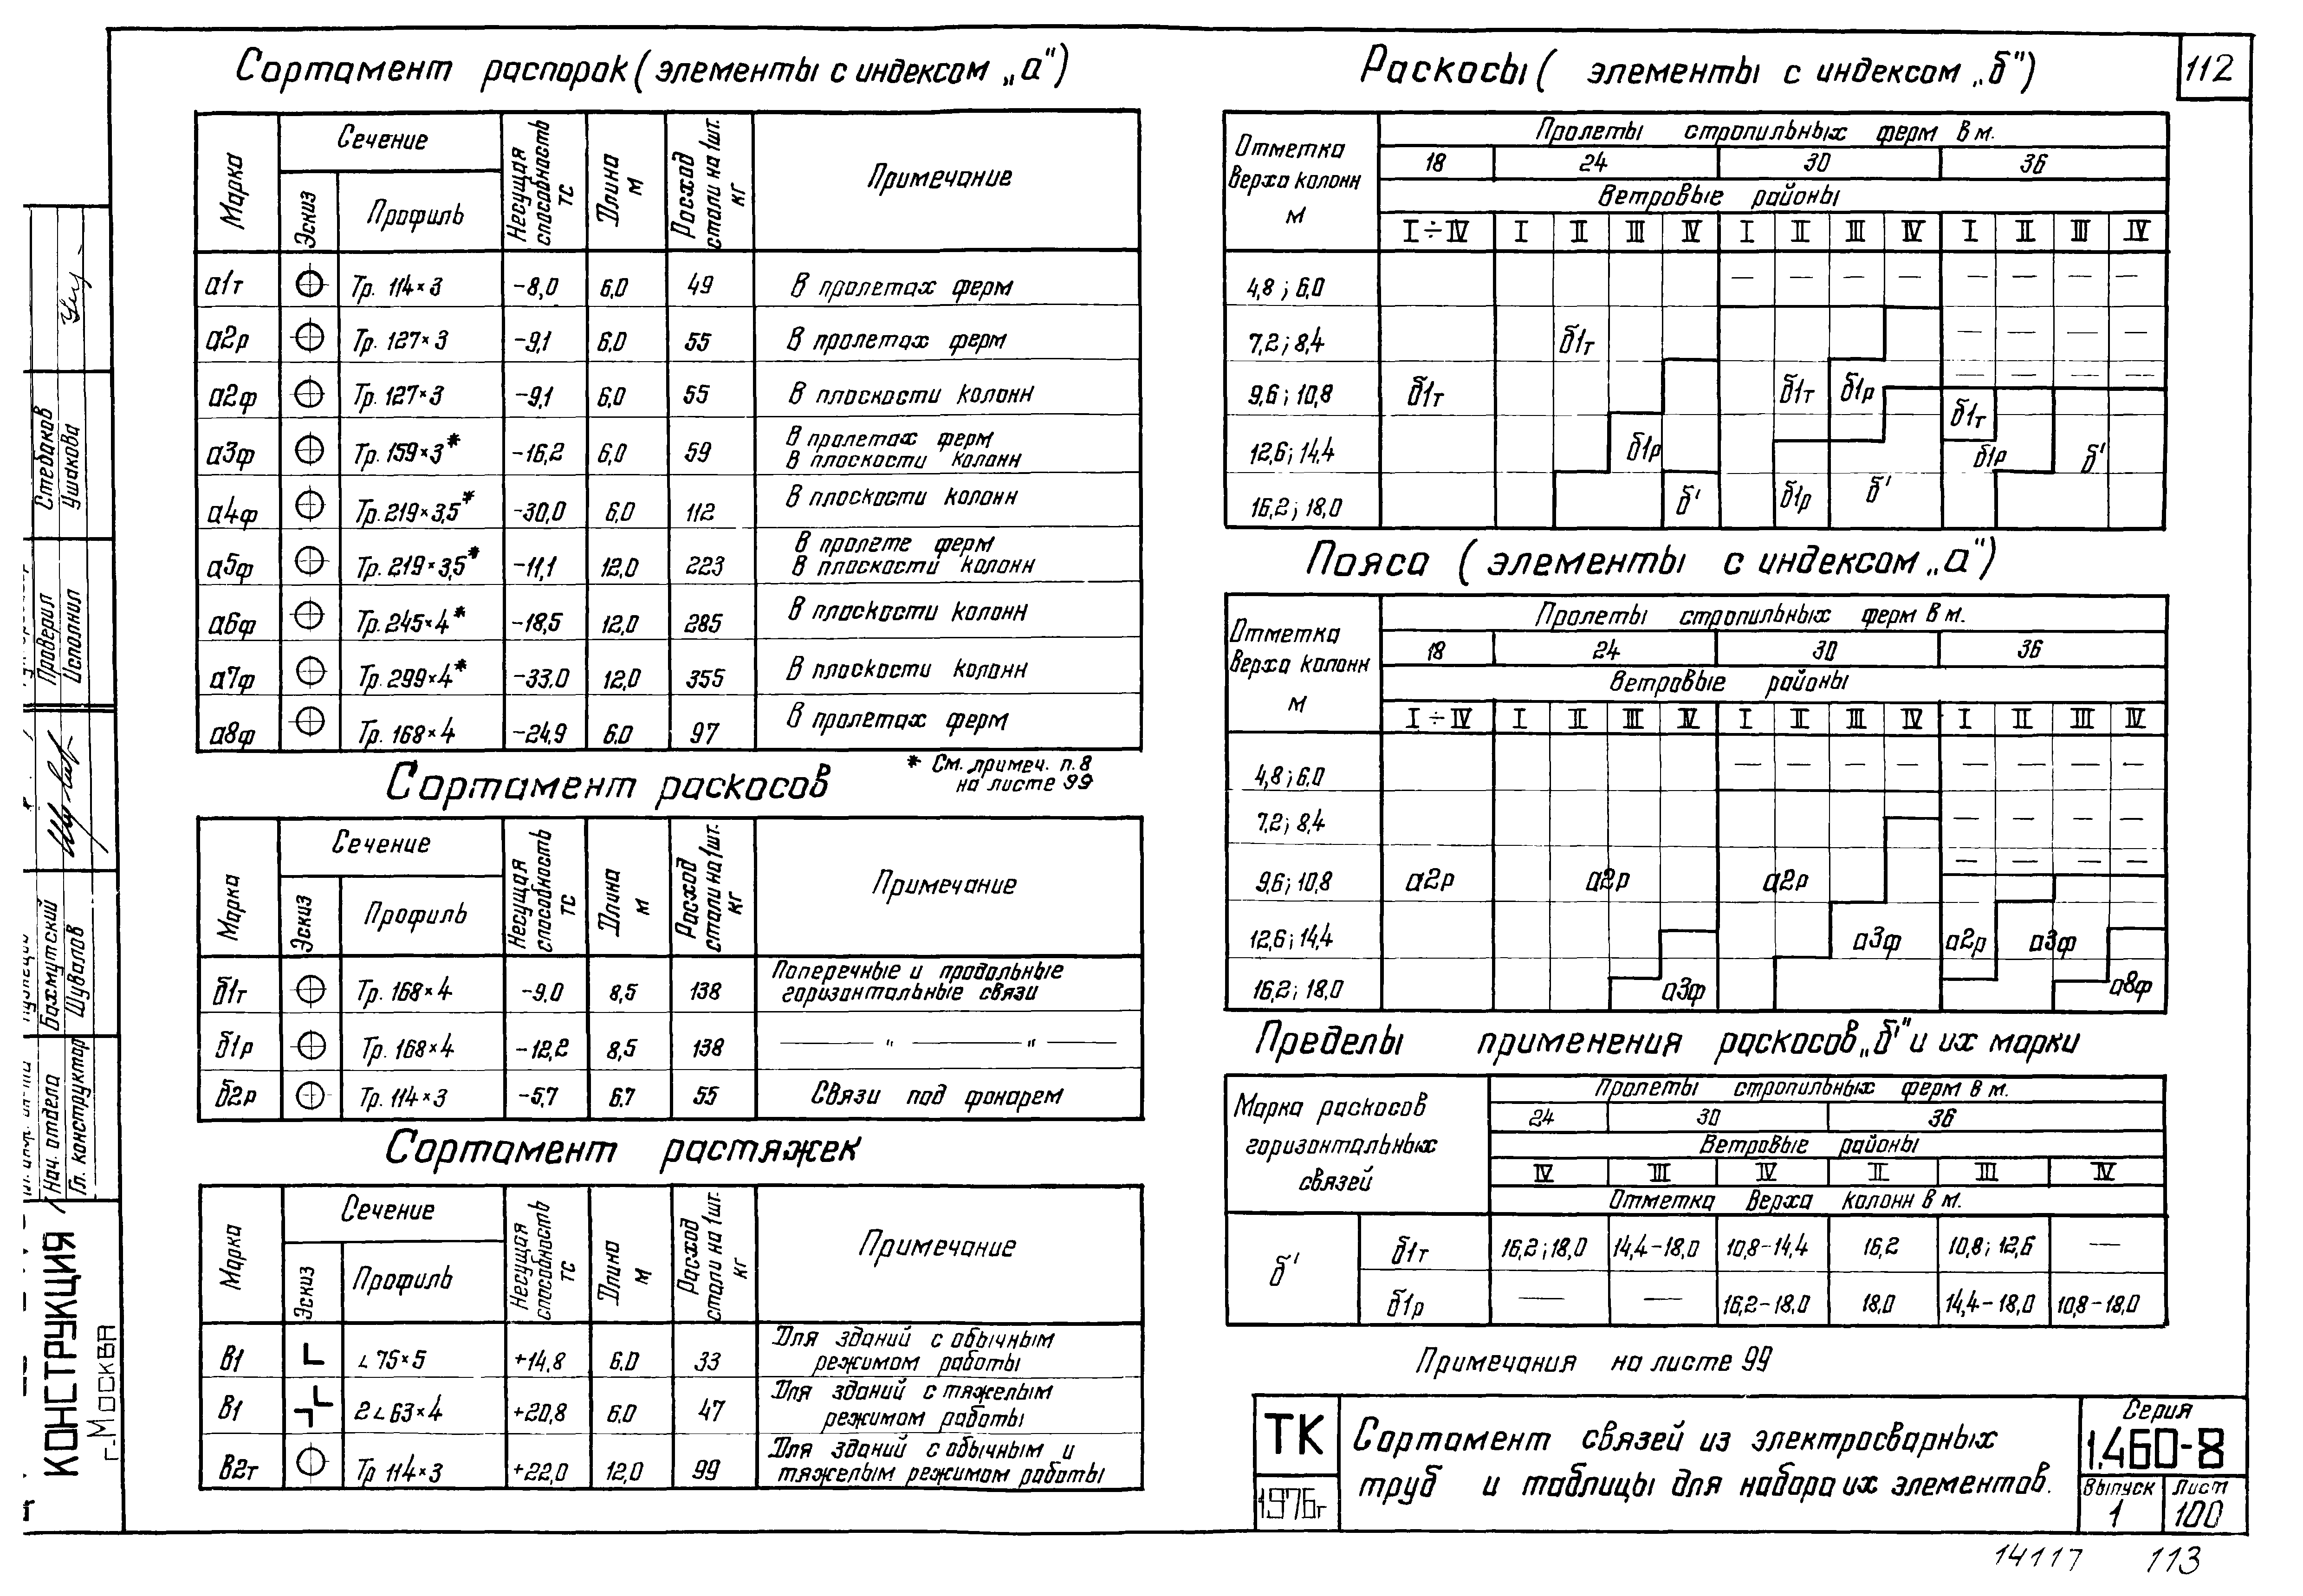 112
Сортамент распорок (элементы с индексом „а")
Марка | Сечение | Несущая способность тс | Длина м | Расход стали на 1шт. кг | Примечание
Эскиз | Профиль
а1т | Тр. 114×3 | -8,0 | 6,0 | 49 | В пролетах ферм
а2р | Тр. 127×3 | -9,1 | 6,0 | 55 | В пролетах ферм
а2ф | Тр. 127×3 | -9,1 | 6,0 | 55 | В плоскости колонн
а3ф | Тр. 159×3* | -16,2 | 6,0 | 59 | В пролетах ферм
В плоскости колонн
а4ф | Тр. 219×3,5* | -30,0 | 6,0 | 112 | В плоскости колонн
а5ф | Тр. 219×3,5* | -11,1 | 12,0 | 223 | В пролете ферм
В плоскости колонн
а6ф | Тр. 245×4* | -18,5 | 12,0 | 285 | В плоскости колонн
а7ф | Тр. 299×4* | -33.0 | 12,0 | 355 | В плоскости колонн
а8ф | Тр. 168×4 | -24,9 | 6.0 | 97 | В пролетах ферм
* См. примеч. п.8
на листе 99
Сортамент раскосов
Марка | Сечение | Несущая способность тс | Длина м | Расход стали на 1шт. кг | Примечание
Эскиз | Профиль
б1т | Тр. 168×4 | -9.0 | 8,5 | 138 | Поперечные и продольные
горизонтальные связи
б1р | Тр. 168×4 | -12,2 | 8,5 | 138 | — " — " —
б2р | Тр. 114×3 | -5,7 | 6.7 | 55 | Связи под фонарем
Сортамент растяжек
Марка | Сечение | Несущая способность тс | Длина м | Расход стали на 1шт. кг | Примечание
Эскиз | Профиль
В1 | ∟ 75×5 | +14,8 | 6.0 | 33 | Для зданий с обычным
режимом работы
В1 | 2∟63×4 | +20,8 | 6.0 | 47 | Для зданий с тяжелым
режимом работы
В2т | Тр 114×3 | +22,0 | 12,0 | 99 | Для зданий с обычным и
тяжелым режимом работы
Раскосы ( элементы с индексом „б")
Отметка верха колонн м | Пролеты стропильных ферм в м.
18 | 24 | 30 | 36
Ветровые районы
I÷IV | I | II | III | IV | I | II | III | IV | I | II | III | IV
4,8; 6,0 | — | — | — | — | — | — | — | —
7,2; 8,4 | б1т | — | — | — | —
— | — | — | —
9,6; 10,8 | б1т | б1т | б1р | б1т
12,6; 14,4 | б1р | б1р | б'
16,2; 18,0 | б' | б1р | б'
Пояса ( элементы с индексом „а")
Отметка верха колонн м | Пролеты стропильных ферм в м.
18 | 24 | 30 | 36
Ветровые районы
I÷IV | I | II | III | IV | I | II | III | IV | I | II | III | IV
4,8; 6,0 | — | — | — | — | — | — | — | —
7,2; 8,4 | — | — | — | —
— | — | — | —
9,6; 10,8 | а2р | а2р | а2р
12,6; 14,4 | а3ф | а2р | а3ф
16,2; 18,0 | а3ф | а8ф
Пределы применения раскосов „б'" и их марки
Марка раскосов горизонтальных связей | Пролеты стропильных ферм в м.
24 | 30 | 36
Ветровые районы
IV | III | IV | II | III | IV
Отметка верха колонн в м.
б' | б1т | 16,2; 18,0 | 14,4-18,0 | 10,8-14,4 | 16,2 | 10,8; 12,6 | —
б1р | — | — | 16,2-18.0 | 18.0 | 14,4-18,0 | 10,8-18,0
Примечания на листе 99
ТК
1976г
Сортамент связей из электросварных
труб и таблицы для набора их элементов.
Серия
1.460-8
Выпуск
1
Лист
100
14117 113
Стебаков
Ушакова
Проверил
Исполнил
Бахмутский
Шувалов
Нач. отдела
Гл. конструктор
КОНСТРУКЦИЯ
г.Москва